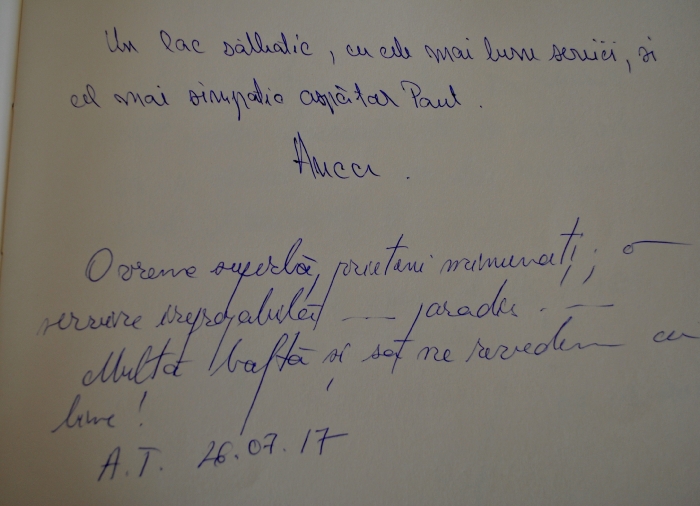 Un lac sălbatic, cu cele mai bune servicii, si
cel mai simpatic ospătar Paul.
Anca.
O vreme superbă, prieteni minunați; o
servire ireproșabilă — paradis. —
Multă baftă și să ne revedem cu
bine!
A.T. 26.07.17